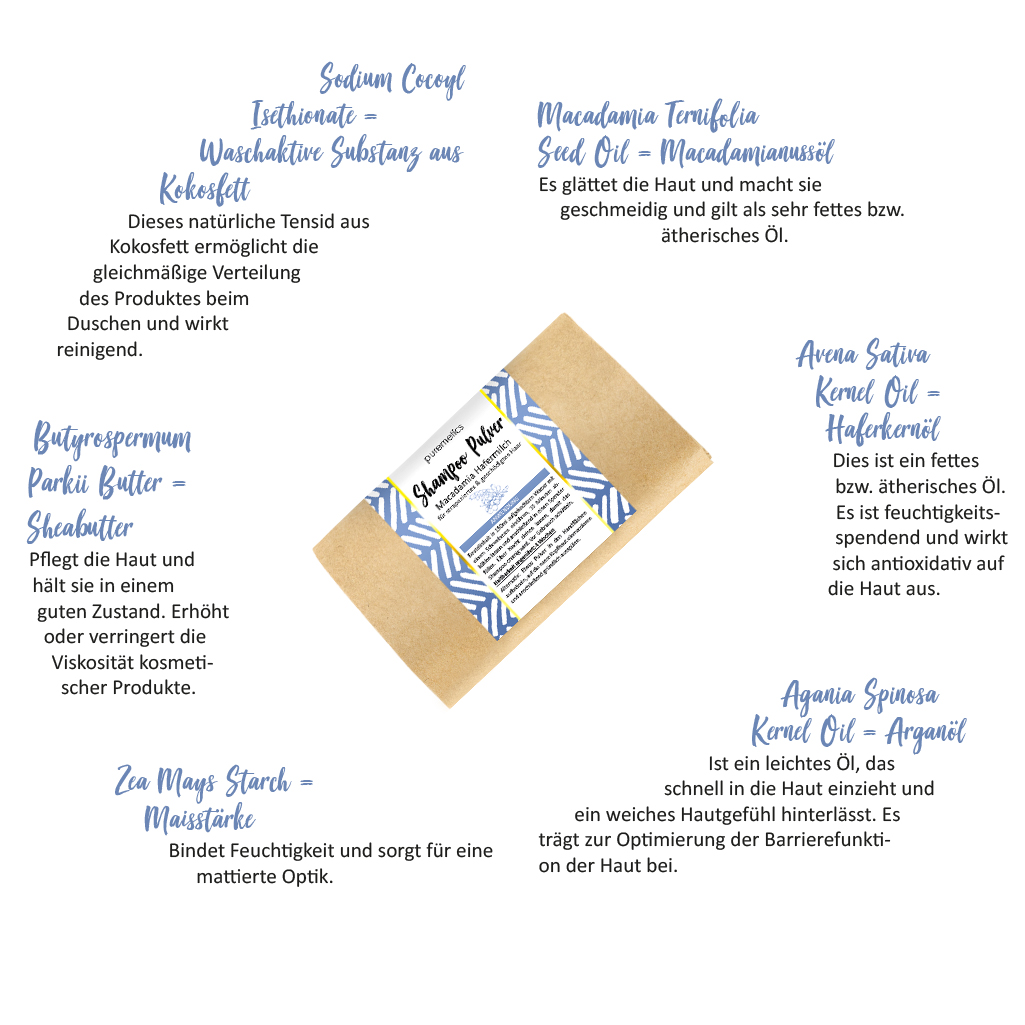 Sodium Cocoyl
Isethionate =
Waschaktive Substanz aus
Kokosfett
Dieses natürliche Tensid aus
Kokosfett ermöglicht die
gleichmäßige Verteilung
des Produktes beim
Duschen und wirkt
reinigend.
Macadamia Ternifolia
Seed Oil = Macadamianussöl
Es glättet die Haut und macht sie
geschmeidig und gilt als sehr fettes bzw.
ätherisches Öl.
Avena Sativa
Kernel Oil =
Haferkernöl
Dies ist ein fettes
bzw. ätherisches Öl.
Es ist feuchtigkeits-
spendend und wirkt
sich antioxidativ auf
die Haut aus.
Butyrospermum
Parkii Butter =
Sheabutter
Pflegt die Haut und
hält sie in einem
guten Zustand. Erhöht
oder verringert die
Viskosität kosmeti-
scher Produkte.
puremetics
Shampoo Pulver
Macadamia Hafermilch
für strapaziertes & geschädigtes Haar
Agania Spinosa
Kernel Oil = Arganöl
Ist ein leichtes Öl, das
schnell in die Haut einzieht und
ein weiches Hautgefühl hinterlässt. Es
trägt zur Optimierung der Barrierefunkti-
on der Haut bei.
Zea Mays Starch =
Maisstärke
Bindet Feuchtigkeit und sorgt für eine
mattierte Optik.